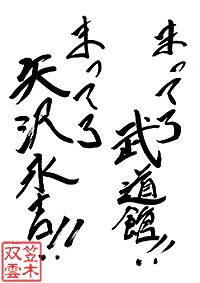 待ってろ
武道館!!
待ってろ
矢沢永吉!!
笠木
双雲